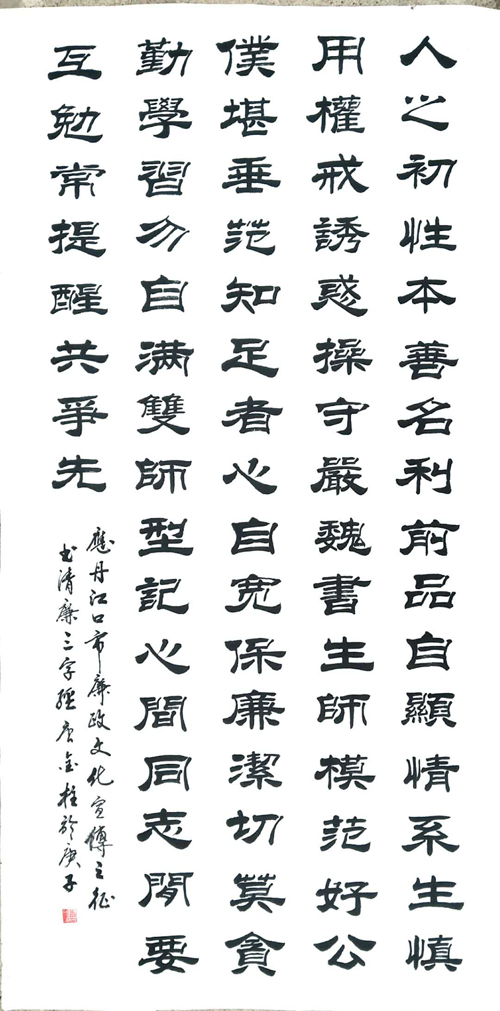 人之初性本善名利前品自顯情系生慎
用權戒誘惑操守嚴魏書生師模范好公
僕堪垂范知足者心自宽保廉潔切莫貪
勤學習勿自满雙師型記心間同志間要
互勉常提醒共爭先
應丹江口市廉政文化宣傳之征
书清廉三字經唐金柱於庚子